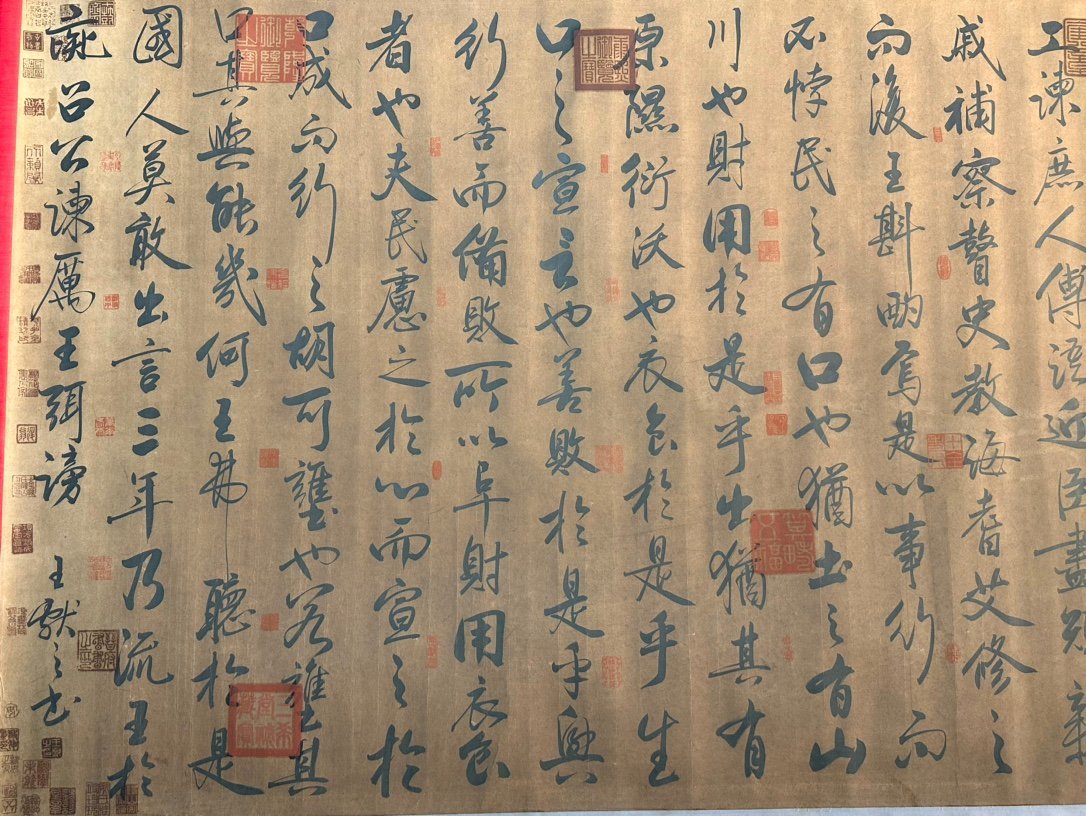 工諫庶人傳語近臣盡規親
戚補察瞽史教誨耆艾修之
而後王斟酌焉是以事行而
不悖民之有口也猶土之有山
川也財用於是乎出猶其有
原隰衍沃也衣食於是乎生
口之宣言也善敗於是乎興
行善而備敗所以阜財用衣食
者也夫民慮之於心而宣之於
口成而行之胡可壅也若壅其
口其與能幾何王弗聽於是
國人莫敢出言三年乃流王於
彘召公諫厲王弭謗 王獻之書